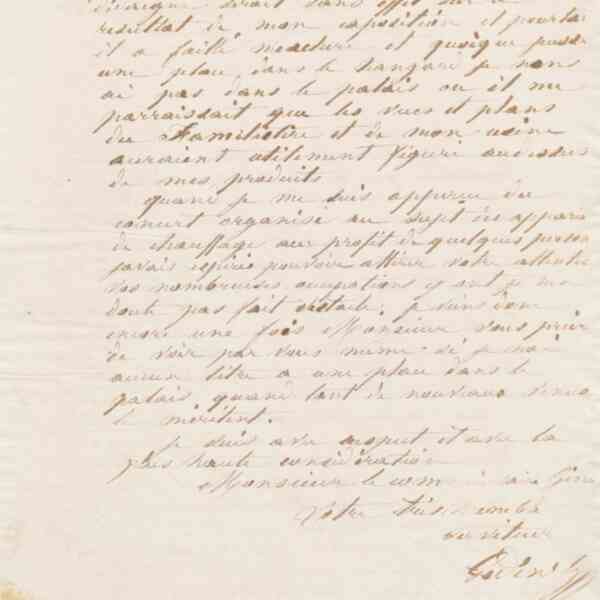 resultat de mon exposition et pourtant
il a fallu
une place dans le hangare je nons
ai pas dans le palais ou il me
parraissait que les vues et plans
du Familistère et de mon usine
auraient utilement figuré audessus
de mes produits
quand je me suis apperçu du
concert organisé au sujet des appareils
de chauffage aux profit de quelques
javais espéré pouvoir attirer votre attention
vos nombreuses occupations y ont je me
doute pas fait obstacle. je viens donc
encore une fois Monsieur vous prier
de voir par vous même si je nai
aucun titre a une place dans le
palais quand tant de nouveaux venus
le méritent.
je suis avec respect et avec la
plus haute considération
Monsieur le
Votre très humble
serviteur
Godin